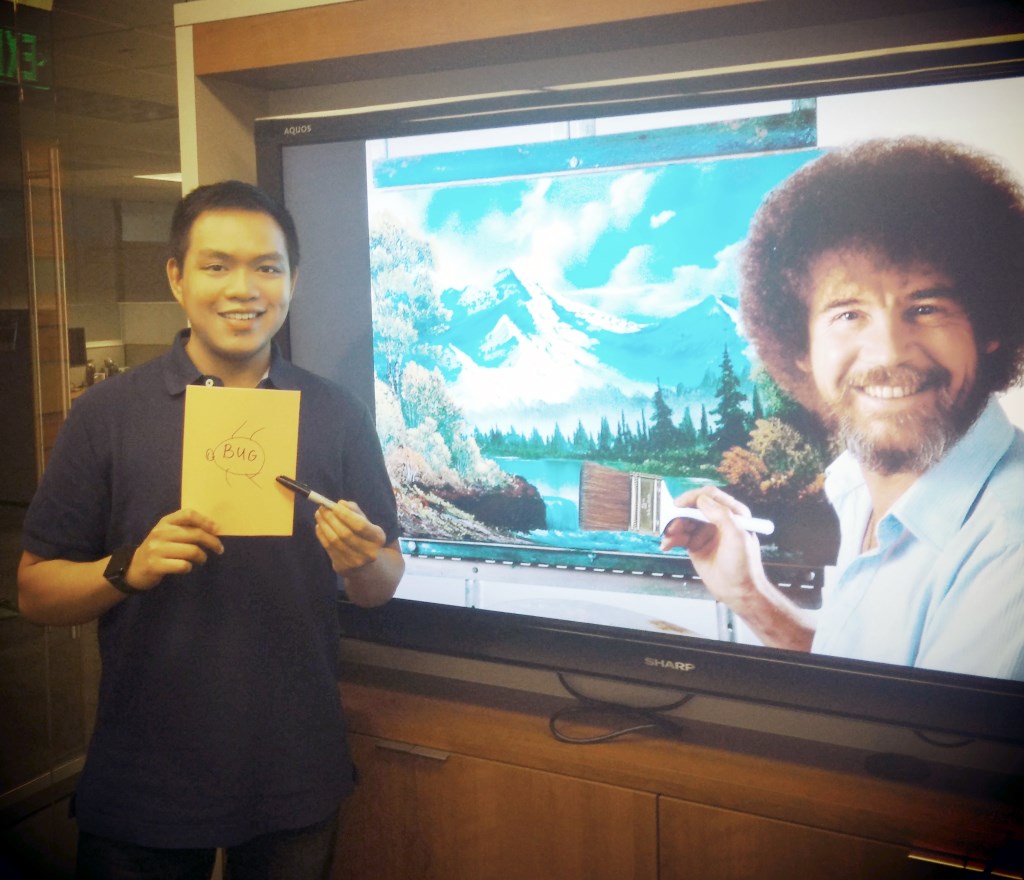 EXI
AQUOS
BUG
SHARP